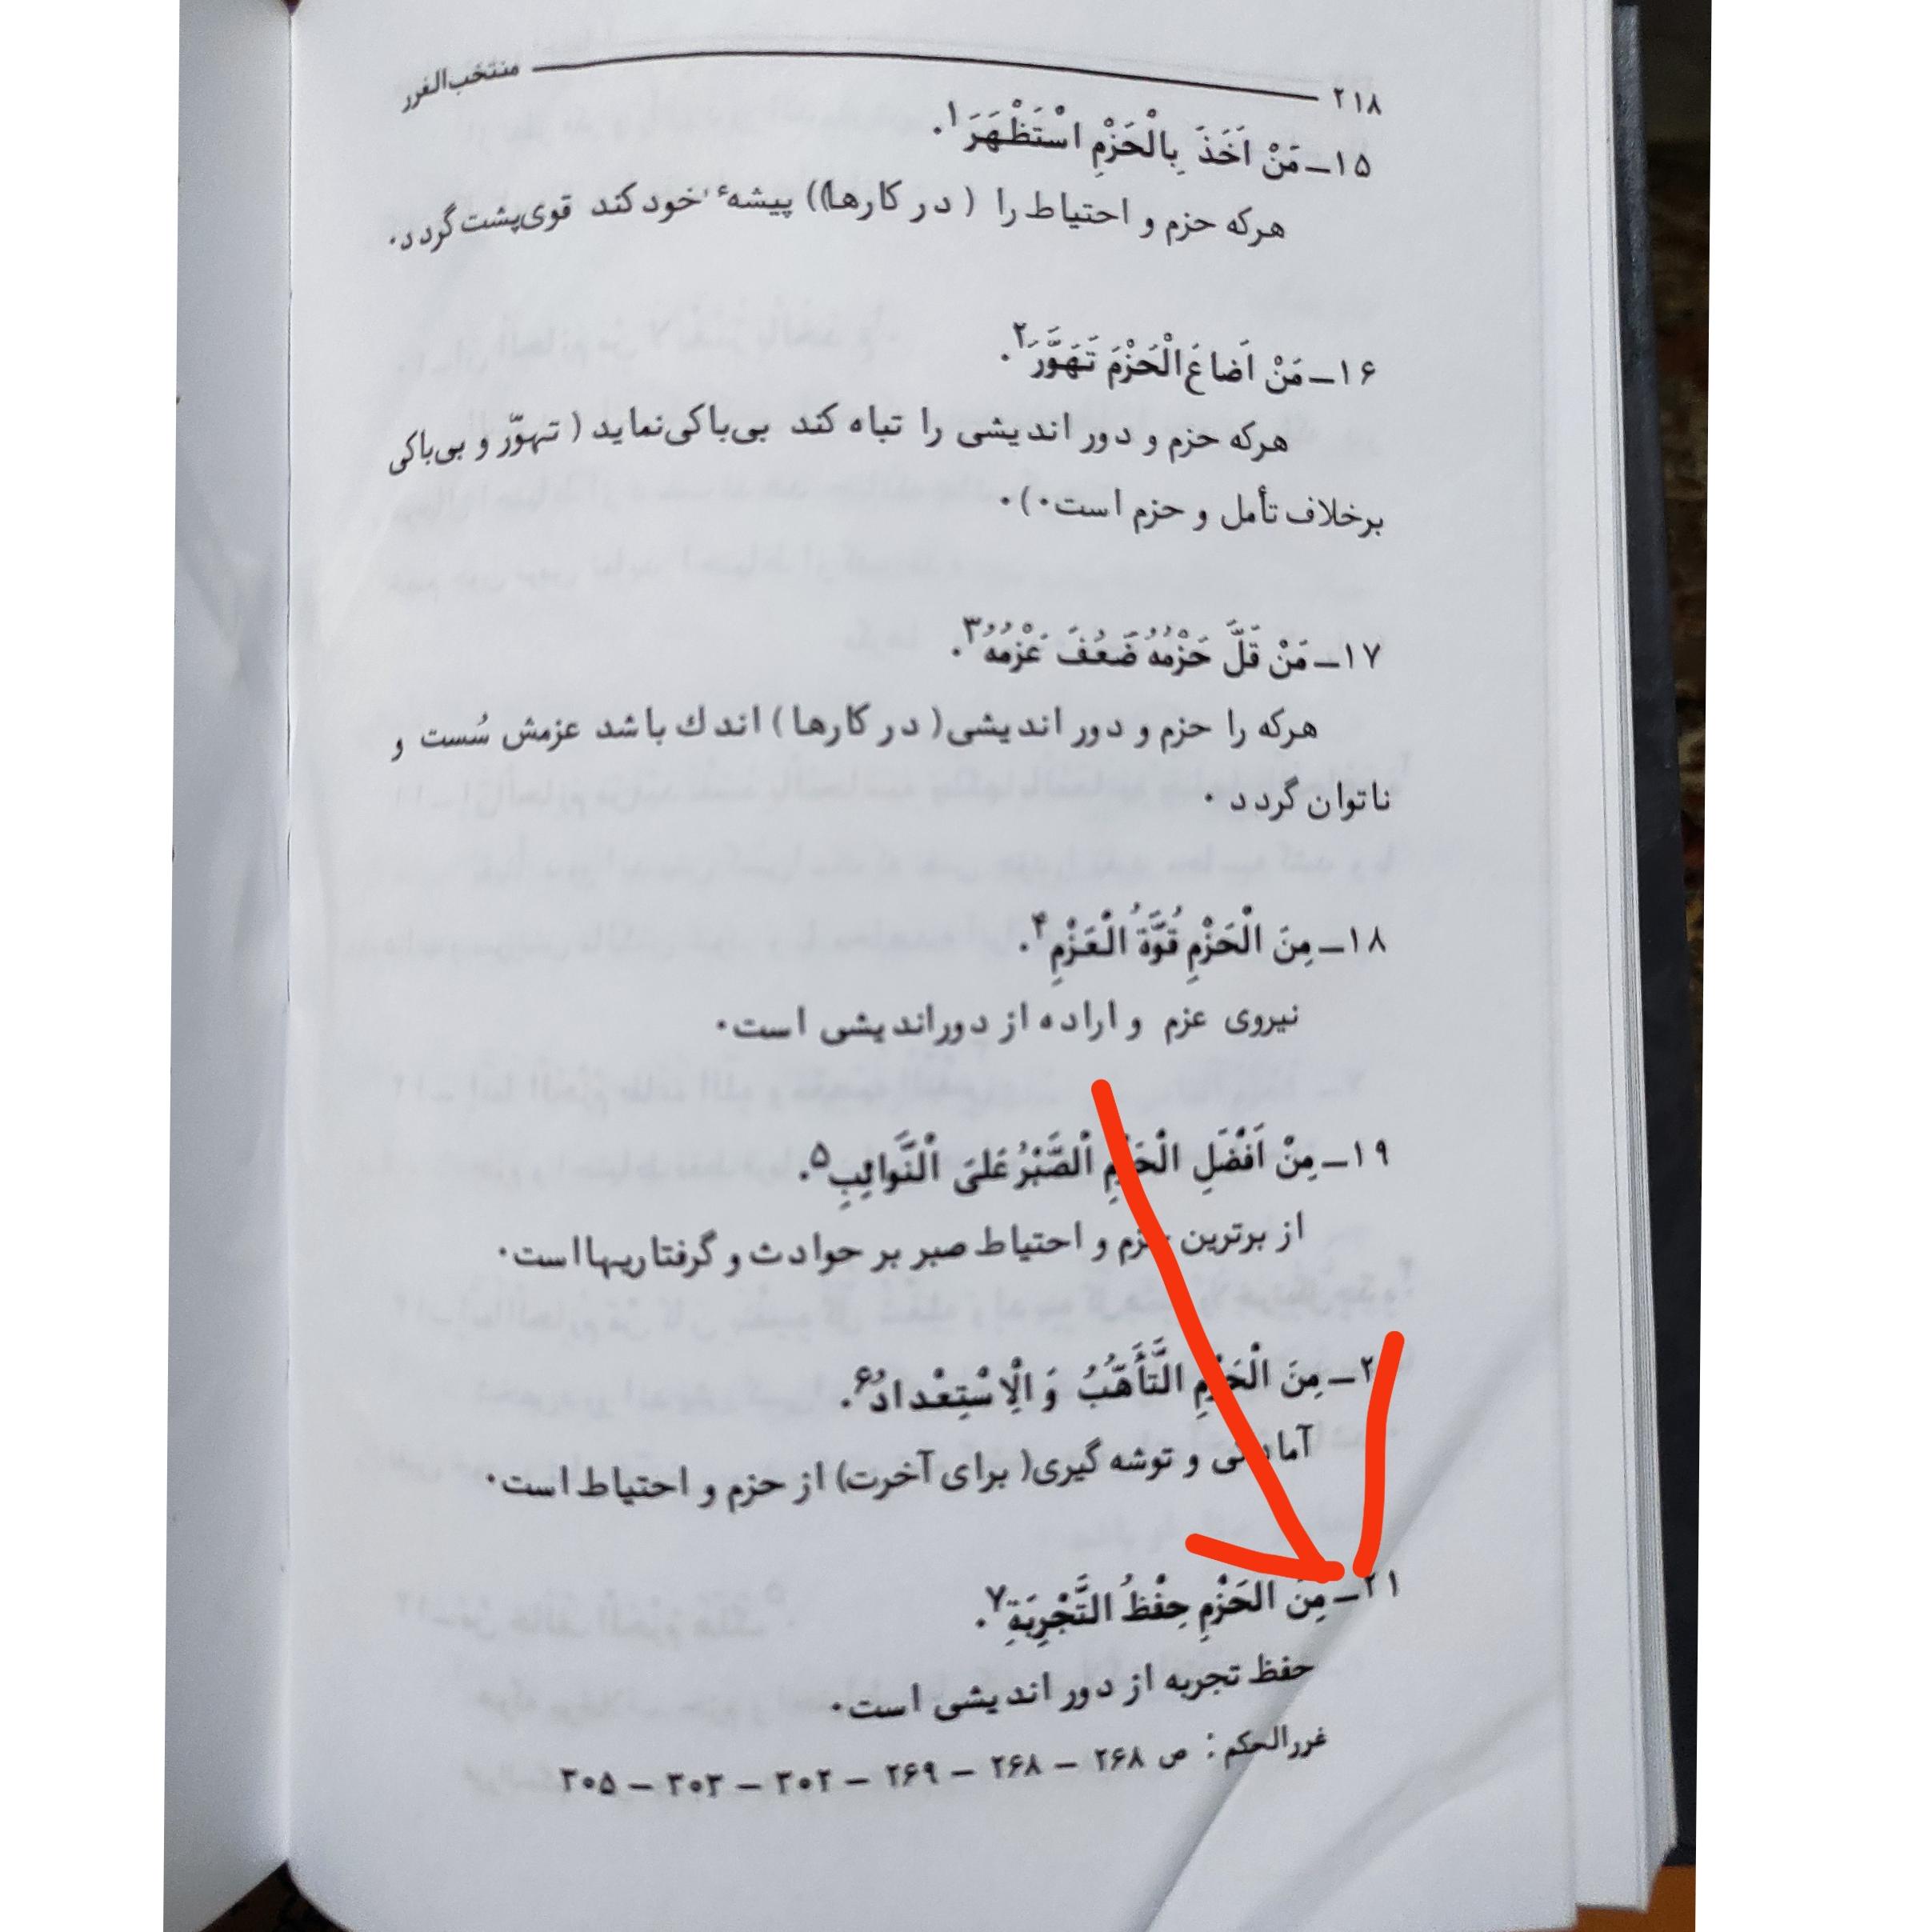 ۲۱۸ منتخب‌الغرر
۱۵ـ مَنْ اَخَذَ بِالْحَزْمِ اسْتَظْهَرَ۱.
هرکه حزم و احتیاط را ( در کارها)) پیشهٔ خود کند قوی‌پشت گردد.
۱۶ـ مَنْ اَضاعَ الْحَزْمَ تَهَوَّرَ۲.
هرکه حزم و دور اندیشی را تباه کند بی‌باکی نماید ( تهوّر و بی‌باکی
برخلاف تأمل و حزم است.).
۱۷ـ مَنْ قَلَّ حَزْمُهُ ضَعُفَ عَزْمُهُ۳.
هرکه را حزم و دور اندیشی( در کارها ) اندك باشد عزمش سُست و
ناتوان گردد .
۱۸ـ مِنَ الْحَزْمِ قُوَّةُ الْعَزْمِ۴.
نیروی عزم و اراده از دوراندیشی است.
۱۹ـ مِنْ اَفْضَلِ الْحَزْمِ اْلصَّبْرُ عَلیَ الْنَّوائِبِ۵.
از برترین حزم و احتیاط صبر بر حوادث و گرفتاریها است.
۲۰ـ مِنَ الْحَزْمِ التَّأَهُّبُ وَ الْاِسْتِعْدادُ۶.
آمادگی و توشه گیری( برای آخرت) از حزم و احتیاط است.
۲۱ـ مِنَ الحَزْمِ حِفْظُ التَّجْرِبَةِ۷.
حفظ تجربه از دور اندیشی است.
غررالحکم : ص ۲۶۸ – ۲۶۸ – ۲۶۹ – ۳۰۲ – ۳۰۳ – ۳۰۵